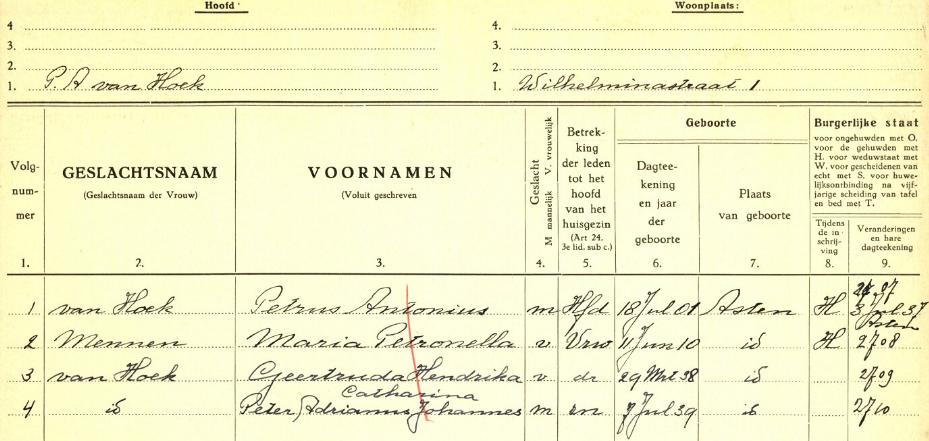 Hoofd Woonplaats:
4 4.
3. 3.
2. 2.
1. P. A van Hoek 1. Wilhelminastraat 1
Volg-
num-
mer
1.
GESLACHTSNAAM
(Geslachtsnaam der Vrouw)
2.
VOORNAMEN
(Voluit geschreven
3.
Geslacht
M mannelijk V. vrouwelijk
4.
Betrek-
king
der leden
tot het
hoofd
van het
huisgezin
(Art 24.
3e lid. sub c.)
5.
Geboorte
Dagtee-
kening
en jaar
der
geboorte
6.
Plaats
van geboorte
7.
Burgerlijke staat
voor ongehuwden met O.
voor de gehuwden met
H. voor weduwstaat met
W. voor gescheidenen van
echt met S. voor huwe-
lijksontbinding na vijf-
jarige scheiding van tafel
en bed met T.
Tijdens
de in-
schrij-
ving
8.
Veranderingen
en hare
dagteekening
9.
07
1 van Hoek Petrus Antonius m Hfd 18 Jul 01 Asten H 3 Jul 37
Asten
2 Mennen Maria Petronella v Vrw 11 Jun 10 id H 2708
3 van Hoek Geertruda Hendrika v dr 29 Mrt 38 id 2709
Catharina
4 id Peter Adrianus Johannes m zn 7 Jul 39 id 2710